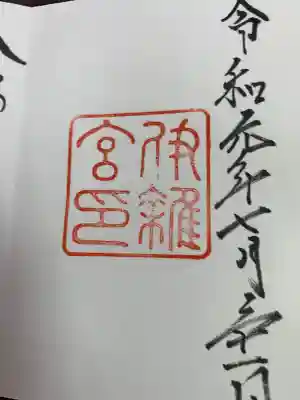 令和元年七月三十一日
伊雜
宮印